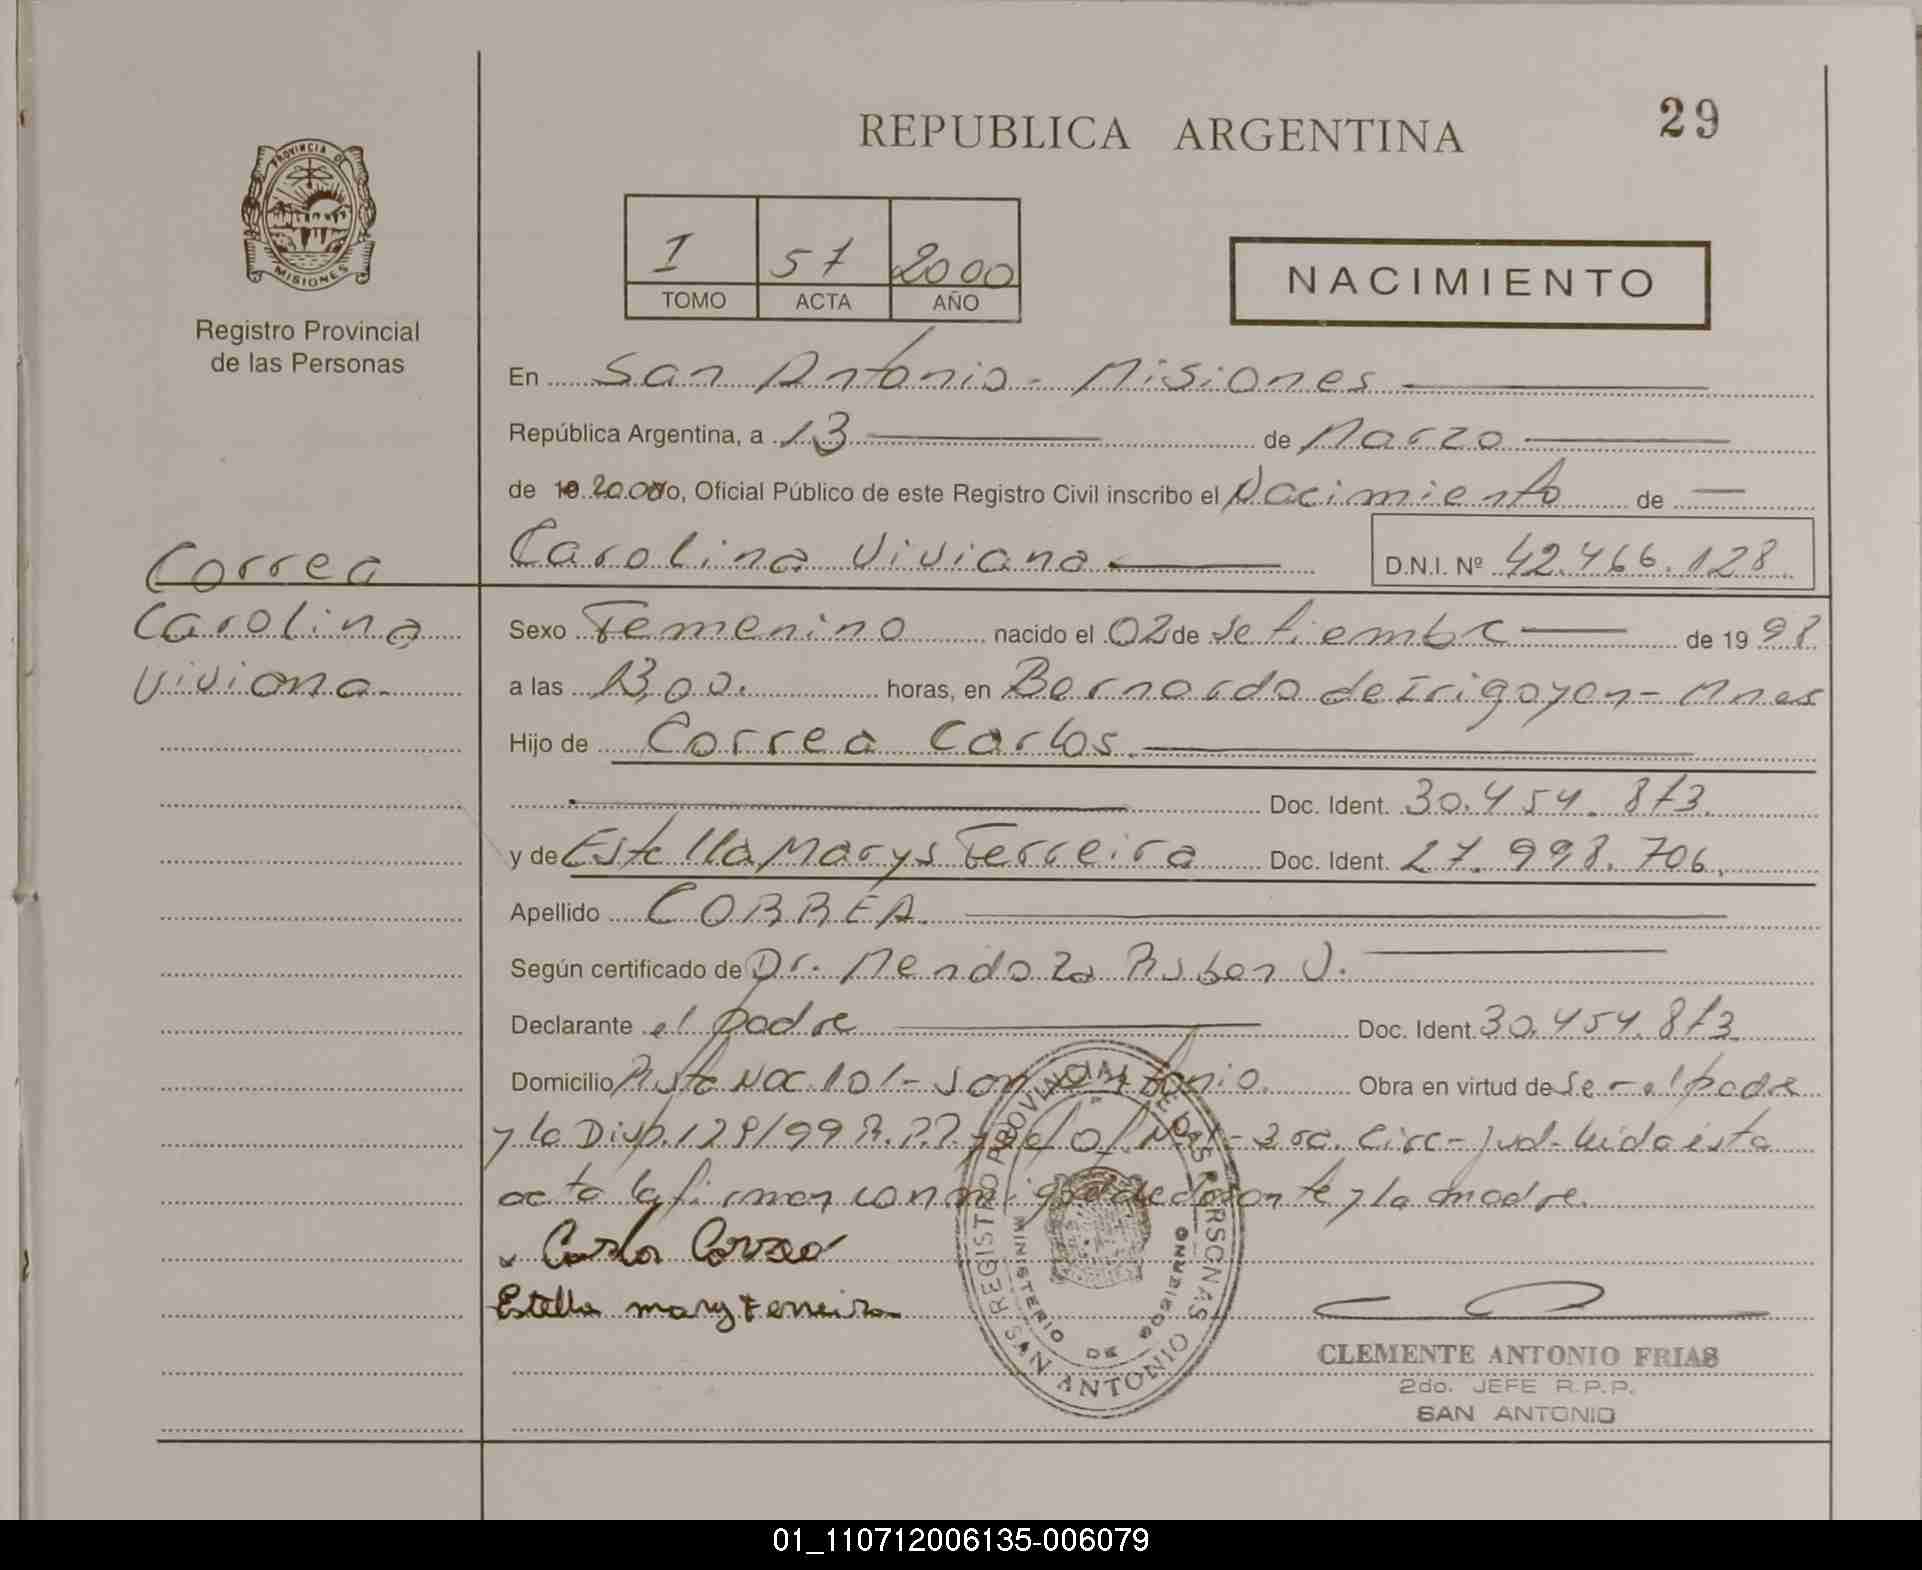 29
REPUBLICA ARGENTINA
PROVINCIA DE MISIONES
Registro Provincial
de las Personas
I 57 2000
TOMO ACTA AÑO
NACIMIENTO
En San Antonio - Misiones
República Argentina, a 13 de Marzo
de 19 2000 yo, Oficial Público de este Registro Civil inscribo el Nacimiento de
Carolina Viviana D.N.I. Nº 42.466.128
Correa
Carolina
Viviana.
Sexo Femenino nacido el 02 de Setiembre de 1998
a las 13,00. horas, en Bernardo de Irigoyen - Mnes
Hijo de Correa Carlos.
Doc. Ident. 30.454.873.
y de Estella Marys Ferreira Doc. Ident. 27.998.706,
Apellido CORREA.
Según certificado de Dr. Mendoza Ruben V.
Declarante el padre Doc. Ident. 30.454.873
Domicilio Ruta Nac 101 - San Antonio. Obra en virtud de ser el padre
y la Disp. 129/99 R.P.P. 3ra. Circ - Jud - leida esta
acta la firman conmigo declarante y la madre.
x Carlos Correa
Estella mary Ferreira
REGISTRO PROVINCIAL DE LAS PERSONAS
MINISTERIO DE GOBIERNO
SAN ANTONIO
CLEMENTE ANTONIO FRIAS
2do. JEFE R.P.P.
SAN ANTONIO
01_110712006135-006079